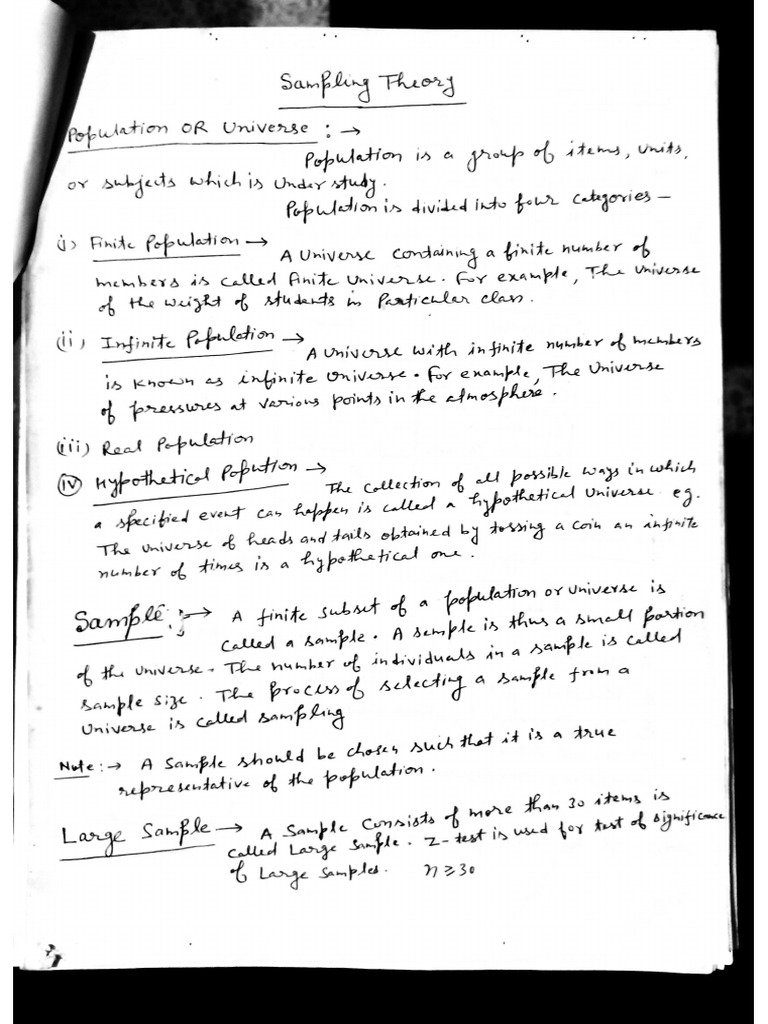 Sampling Theory
Population OR Universe : →
Population is a group of items, units,
or subjects which is under study.
Population is divided into four categories -
i) Finite Population → A Universe containing a finite number of
members is called finite Universe. For example, The Universe
of the weight of students in Particular class.
(ii) Infinite Population → A Universe with infinite number of members
is known as infinite Universe. For example, The Universe
of pressures at various points in the atmosphere.
(iii) Real Population
(iv) Hypothetical Popution → The collection of all possible ways in which
a specified event can happen is called a hypothetical Universe eg.
The universe of heads and tails obtained by tossing a coin an infinite
number of times is a hypothetical one.
Sample : → A finite subset of a population or universe is
called a sample. A sample is thus a small portion
of the universe. The number of individuals in a sample is called
sample size. The process of selecting a sample from a
Universe is called sampling
Note : → A Sample should be chosen such that it is a true
representative of the population.
Large Sample → A Sample Consists of more than 30 items is
called Large Sample. Z-test is used for test of significance
of Large Samples. n ≥ 30